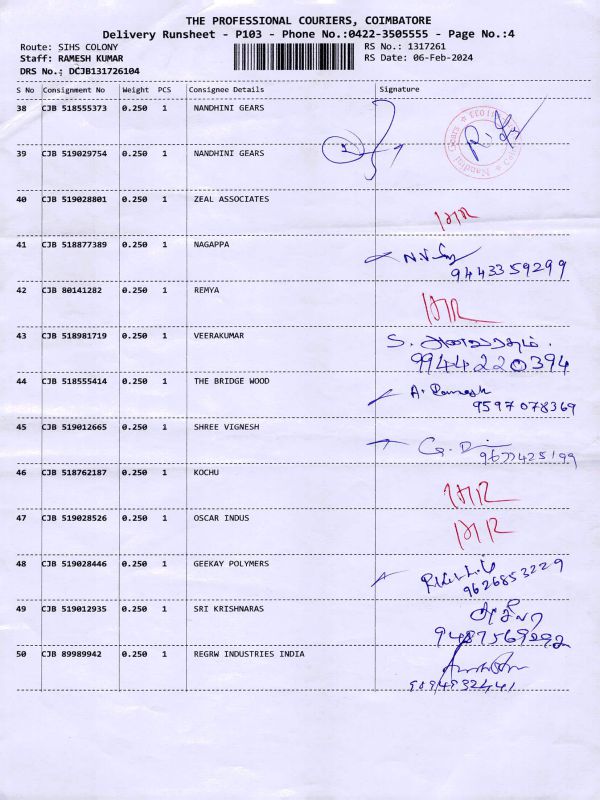 THE PROFESSIONAL COURIERS, COIMBATORE
Delivery Runsheet - P103 - Phone No.:0422-3505555 - Page No.:4
Route: SIHS COLONY RS No.: 1317261
Staff: RAMESH KUMAR RS Date: 06-Feb-2024
DRS No.: DCJB131726104
S No Consignment No Weight PCS Consignee Details Signature
38 CJB 518555373 0.250 1 NANDHINI GEARS
39 CJB 519029754 0.250 1 NANDHINI GEARS
Nandini Gears
40 CJB 519028801 0.250 1 ZEAL ASSOCIATES
41 CJB 518877389 0.250 1 NAGAPPA
9443359299
42 CJB 80141282 0.250 1 REMYA
43 CJB 518981719 0.250 1 VEERAKUMAR
9944220394
44 CJB 518555414 0.250 1 THE BRIDGE WOOD
A. Ramesh
9597078369
45 CJB 519012665 0.250 1 SHREE VIGNESH
46 CJB 518762187 0.250 1 KOCHU
47 CJB 519028526 0.250 1 OSCAR INDUS
48 CJB 519028446 0.250 1 GEEKAY POLYMERS
9626853229
49 CJB 519012935 0.250 1 SRI KRISHNARAS
50 CJB 89989942 0.250 1 REGRW INDUSTRIES INDIA
9894932441